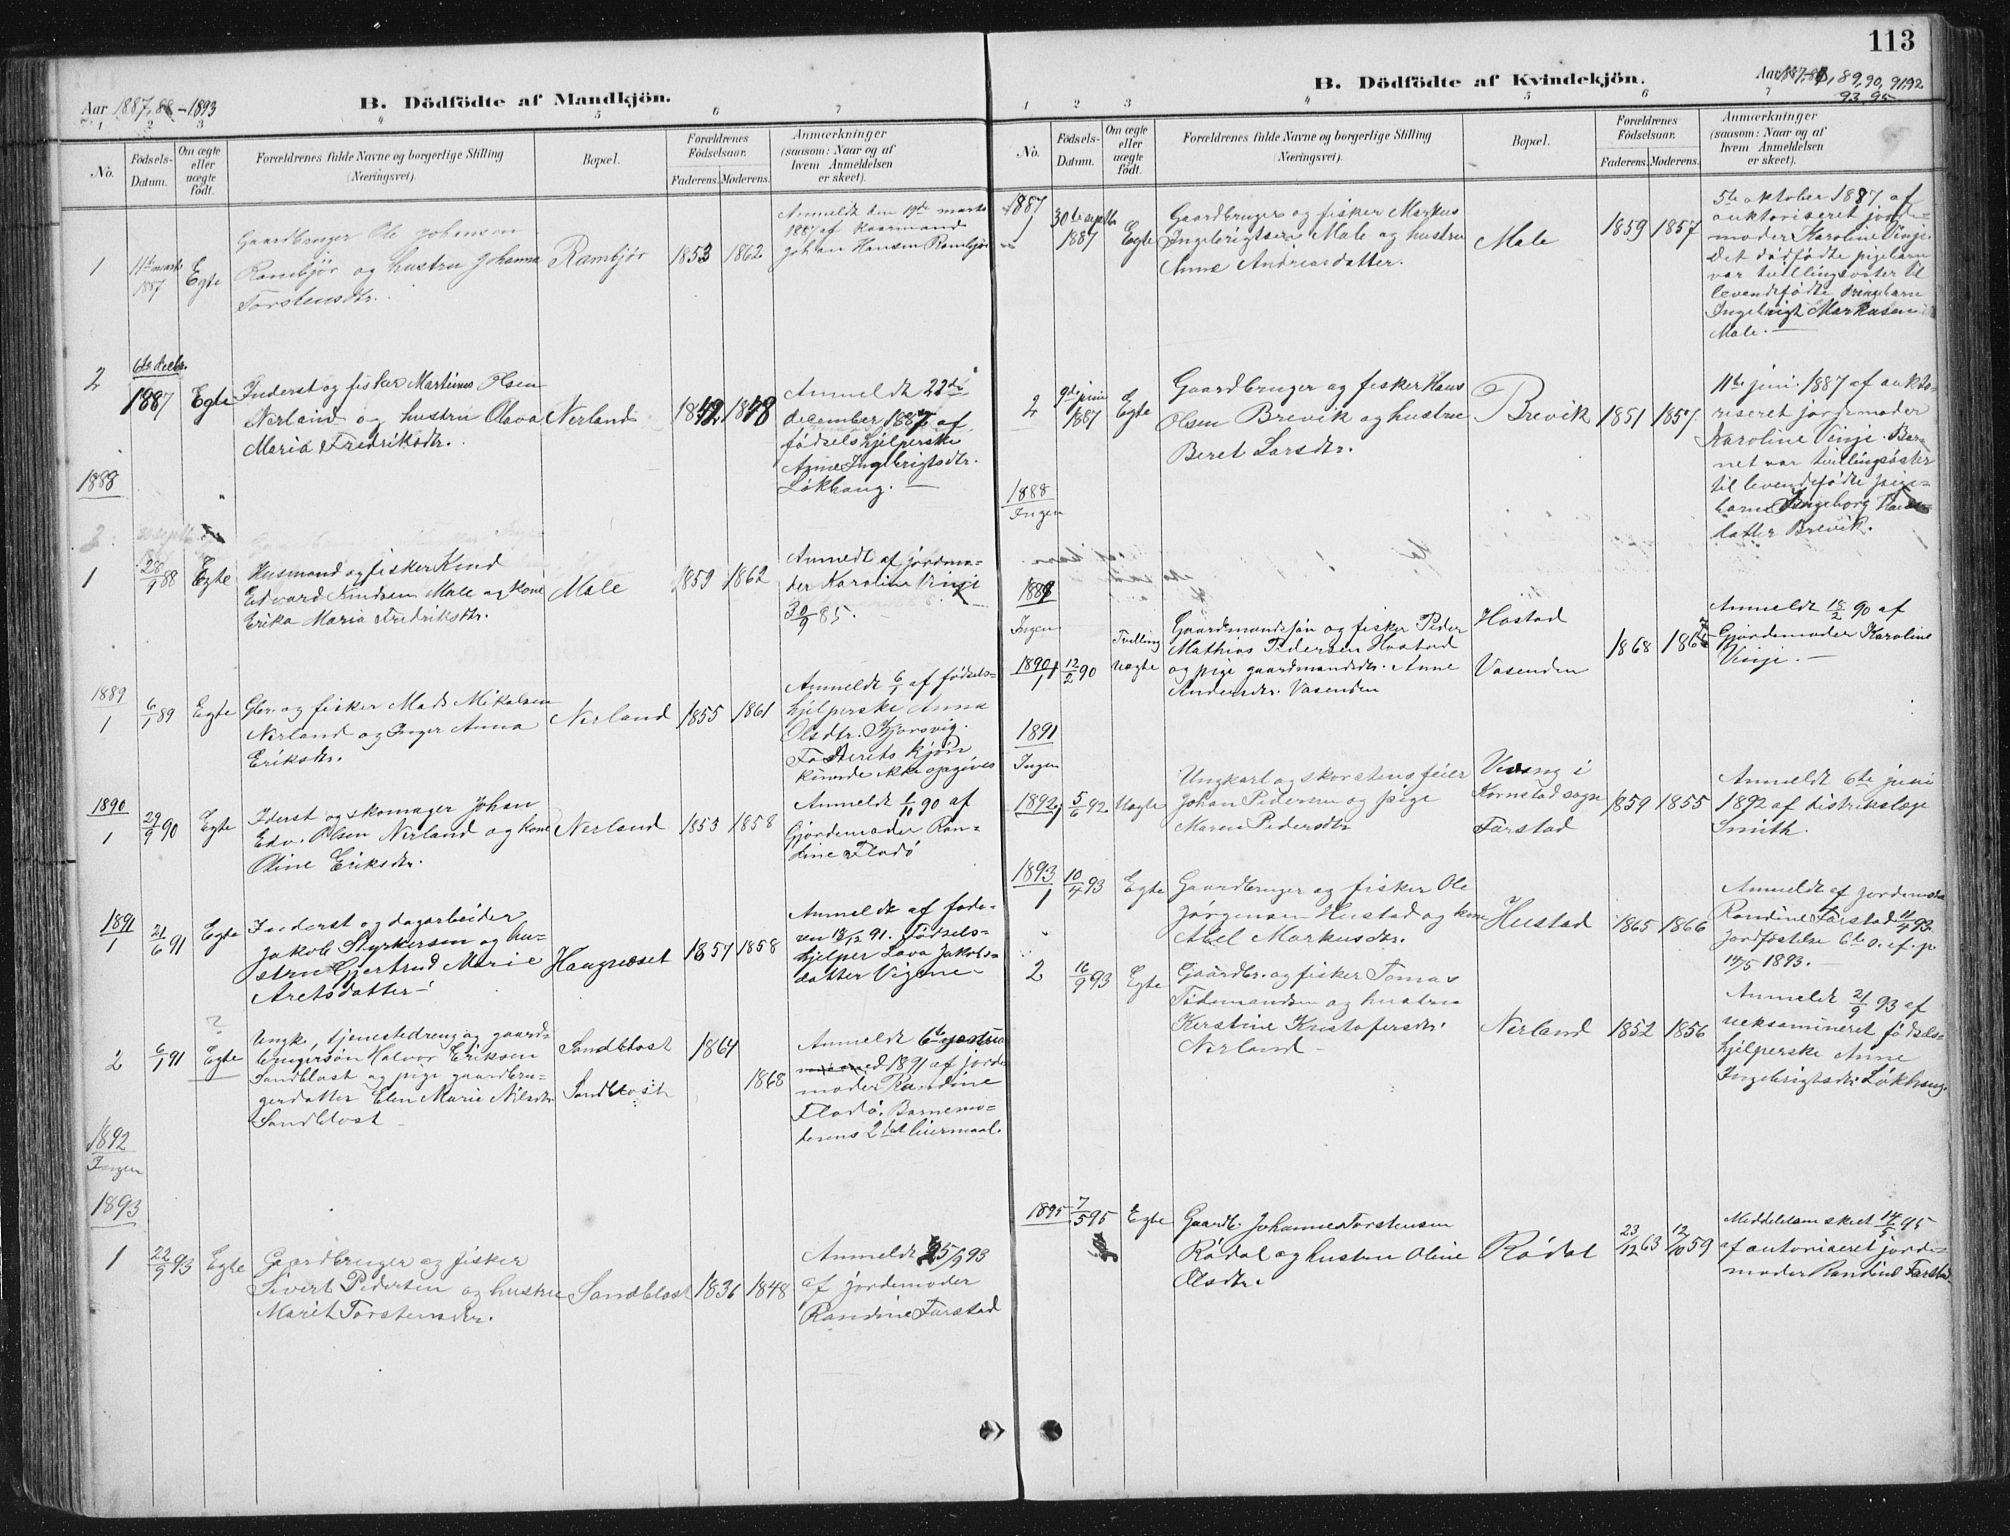 113
Aar 1887, 88 - 1893
B. Dödfödte af Mandkjön.
1 2 3 4 5 6 7
No.
Födsels-
Datum.
Om ægte
eller
uægte
født.
Forældrenes fulde Navne og borgerlige Stilling
(Næringsvei).
Bopæl.
Forældrenes
Födselsaar.
Faderens. Moderens.
Anmærkninger
(saasom: Naar og af
hvem Anmeldelsen
er skeet).
1
11te marts
1887
Egte
Gaardbruger Ole Johansen
Rambjør og hustru Johanna
Torstensdtr.
Rambjør
1853 1862
Anmeldt den 19de marts
1887 af kaarmand
Johan Hansen Rambjør
2
6te decbr.
1887
Egte
Inderst og fisker Martinus Olsen
Nerland og hustru Olava
Maria Fredriksdtr.
Nerland
1842 1848
Anmeldt 22de
december 1887 af
fødselshjelperske
Anne Ingebrigtsdtr.
Løkhaug. —
1888
1
28/1 88
Egte
Husmand og fisker Knud
Edvard Knudsen Male og kone
Erika Maria Fredriksdtr.
Male
1859 1862
Anmeldt af jordmo-
der Karoline Vinje
30/9 85.
1889
1
6/1 89
Egte
Gbr. og fisker Mads Mikalsen
Nerland og Inger Anna
Eriksdtr.
Nerland
1855 1861
Anmeldt 6/1 af fødsels-
hjelperske Anna
Olsdtr. Bjørsvig
Fosterets kjøn
kunde ikke opgives
1890
1
29/9 90
Egte
Iderst og skomager Johan
Edv. Olsen Nerland og kone
Oline Eriksdtr.
Nerland
1853 1858
Anmeldt 1/11 90 af
Gjordemoder Ran-
dine Fladø
1891
1
21/6 91
Egte
Inderst og dagarbeider
Jakob Styrkersen og hu-
stru Gjertrud Marie
Aretsdatter -
Haugneset
1857 1858
Anmeldt af fade-
ren 18/12 91. Fødsels-
hjelper Lava Jakobs-
datter Vigene -
2
6/1 91
?
Egte
Ungk., tjenestedreng og gaard-
brugersøn Halvor Eriksen
Sandblost og pige gaardbru-
gerdatter Elen Marie Nilsdtr.
Sandblost -
Sandblost
Sandblost
1864
1868
Anmeldt 6te
1891 af jorde-
moder Randine
Fladø. Barnemo-
derens 2det leiermaal.
1892
Ingen
1893
1
22/9 93
Egte
Gaardbruger og fisker
Sivert Pedersen og hustru
Marit Torstensdtr.
Sandblost
1836 1848
Anmeldt 25/9 93
af jordemoder
Randine Farstad
Aar 1887, 88, 89, 90, 91, 92
93, 95
B. Dödfödte af Kvindekjön.
1 2 3 4 5 6 7
No.
Födsels-
Datum.
Om ægte
eller
uægte
født.
Forældrenes fulde Navne og borgerlige Stilling
(Næringsvei).
Bopæl.
Forældrenes
Födselsaar.
Faderens. Moderens.
Anmærkninger
(saasom: Naar og af
hvem Anmeldelsen
er skeet).
1887
1
30te septbr
1887
Egte
Gaardbruger og fisker Markus
Ingebrigtsen Male og hustru
Anne Andreasdatter.
Male
1859 1857
5te oktober 1887 af
auktoriseret jorde-
moder Karoline Vinje.
Det dødfødte pigebarn
var tvillingsøster til
levendefødte drengebarn
Ingebrigt Markusen
Male. —
2
9de juni
1887
Egte
Gaardbruger og fisker Hans
Olsen Brevik og hustru
Beret Larsdtr.
Brevik
1851 1857.
11te juni 1887 af aukto-
riseret jordemoder
Karoline Vinje. Bar-
net var tvillingsøster
til levendefødte pige-
barn Ingeborg Hans-
datter Brevik.
1888
Ingen
1889
Ingen
1890
1
12/2 90
Tvilling
Uægte
Gaardmandssøn og fisker Peder
Mathias Pedersen Hostad
og pige gaardmandsdtr. Anne
Andersdtr. Vasenden
Hostad
Vasenden
1868 1867
Anmeldt 18/2 90 af
Gjordemoder Karoline
Vinje. —
1891
Ingen
1892
1
5/6 92
Uægte
Ungkarl og skorstensfeier
Johan Pedersen og pige
Maren Pedersdtr
Vevang i
Kornstad sogn
Farstad
1859 1855
Anmeldt 6te juni
1892 af distriktslæge
Smith.
1893
1
10/4 93
Egte
Gaardbruger og fisker Ole
Jørgensen Hustad og kone
Abel Markusdtr.
Hustad
1865 1866
Anmeldt af Jordemoder
Randine Farstad 11/4 93.
Jordfæstelse 6te s. ef. p.
14/5 1893. —
2
16/9 93
Egte
Gaardbr. og fisker Tomas
Tidemandsen og hustru
Kerstine Kristofersdtr.
Nerland -
Nerland
1852 1856
Anmeldt 21/9 93 af
ueksamineret fødsels-
hjelperske Anne
Ingebrigtsdtr. Løkhaug.
1895
7/5 95
Egte
Gaardb. Johannes Torstensen
Rødal og hustru Oline
Olsdtr.
Rødal
23/12 63 12/10 59
Meddelelsen skeet 14/5 95
af autoriseret jorde-
moder Randine Farstad